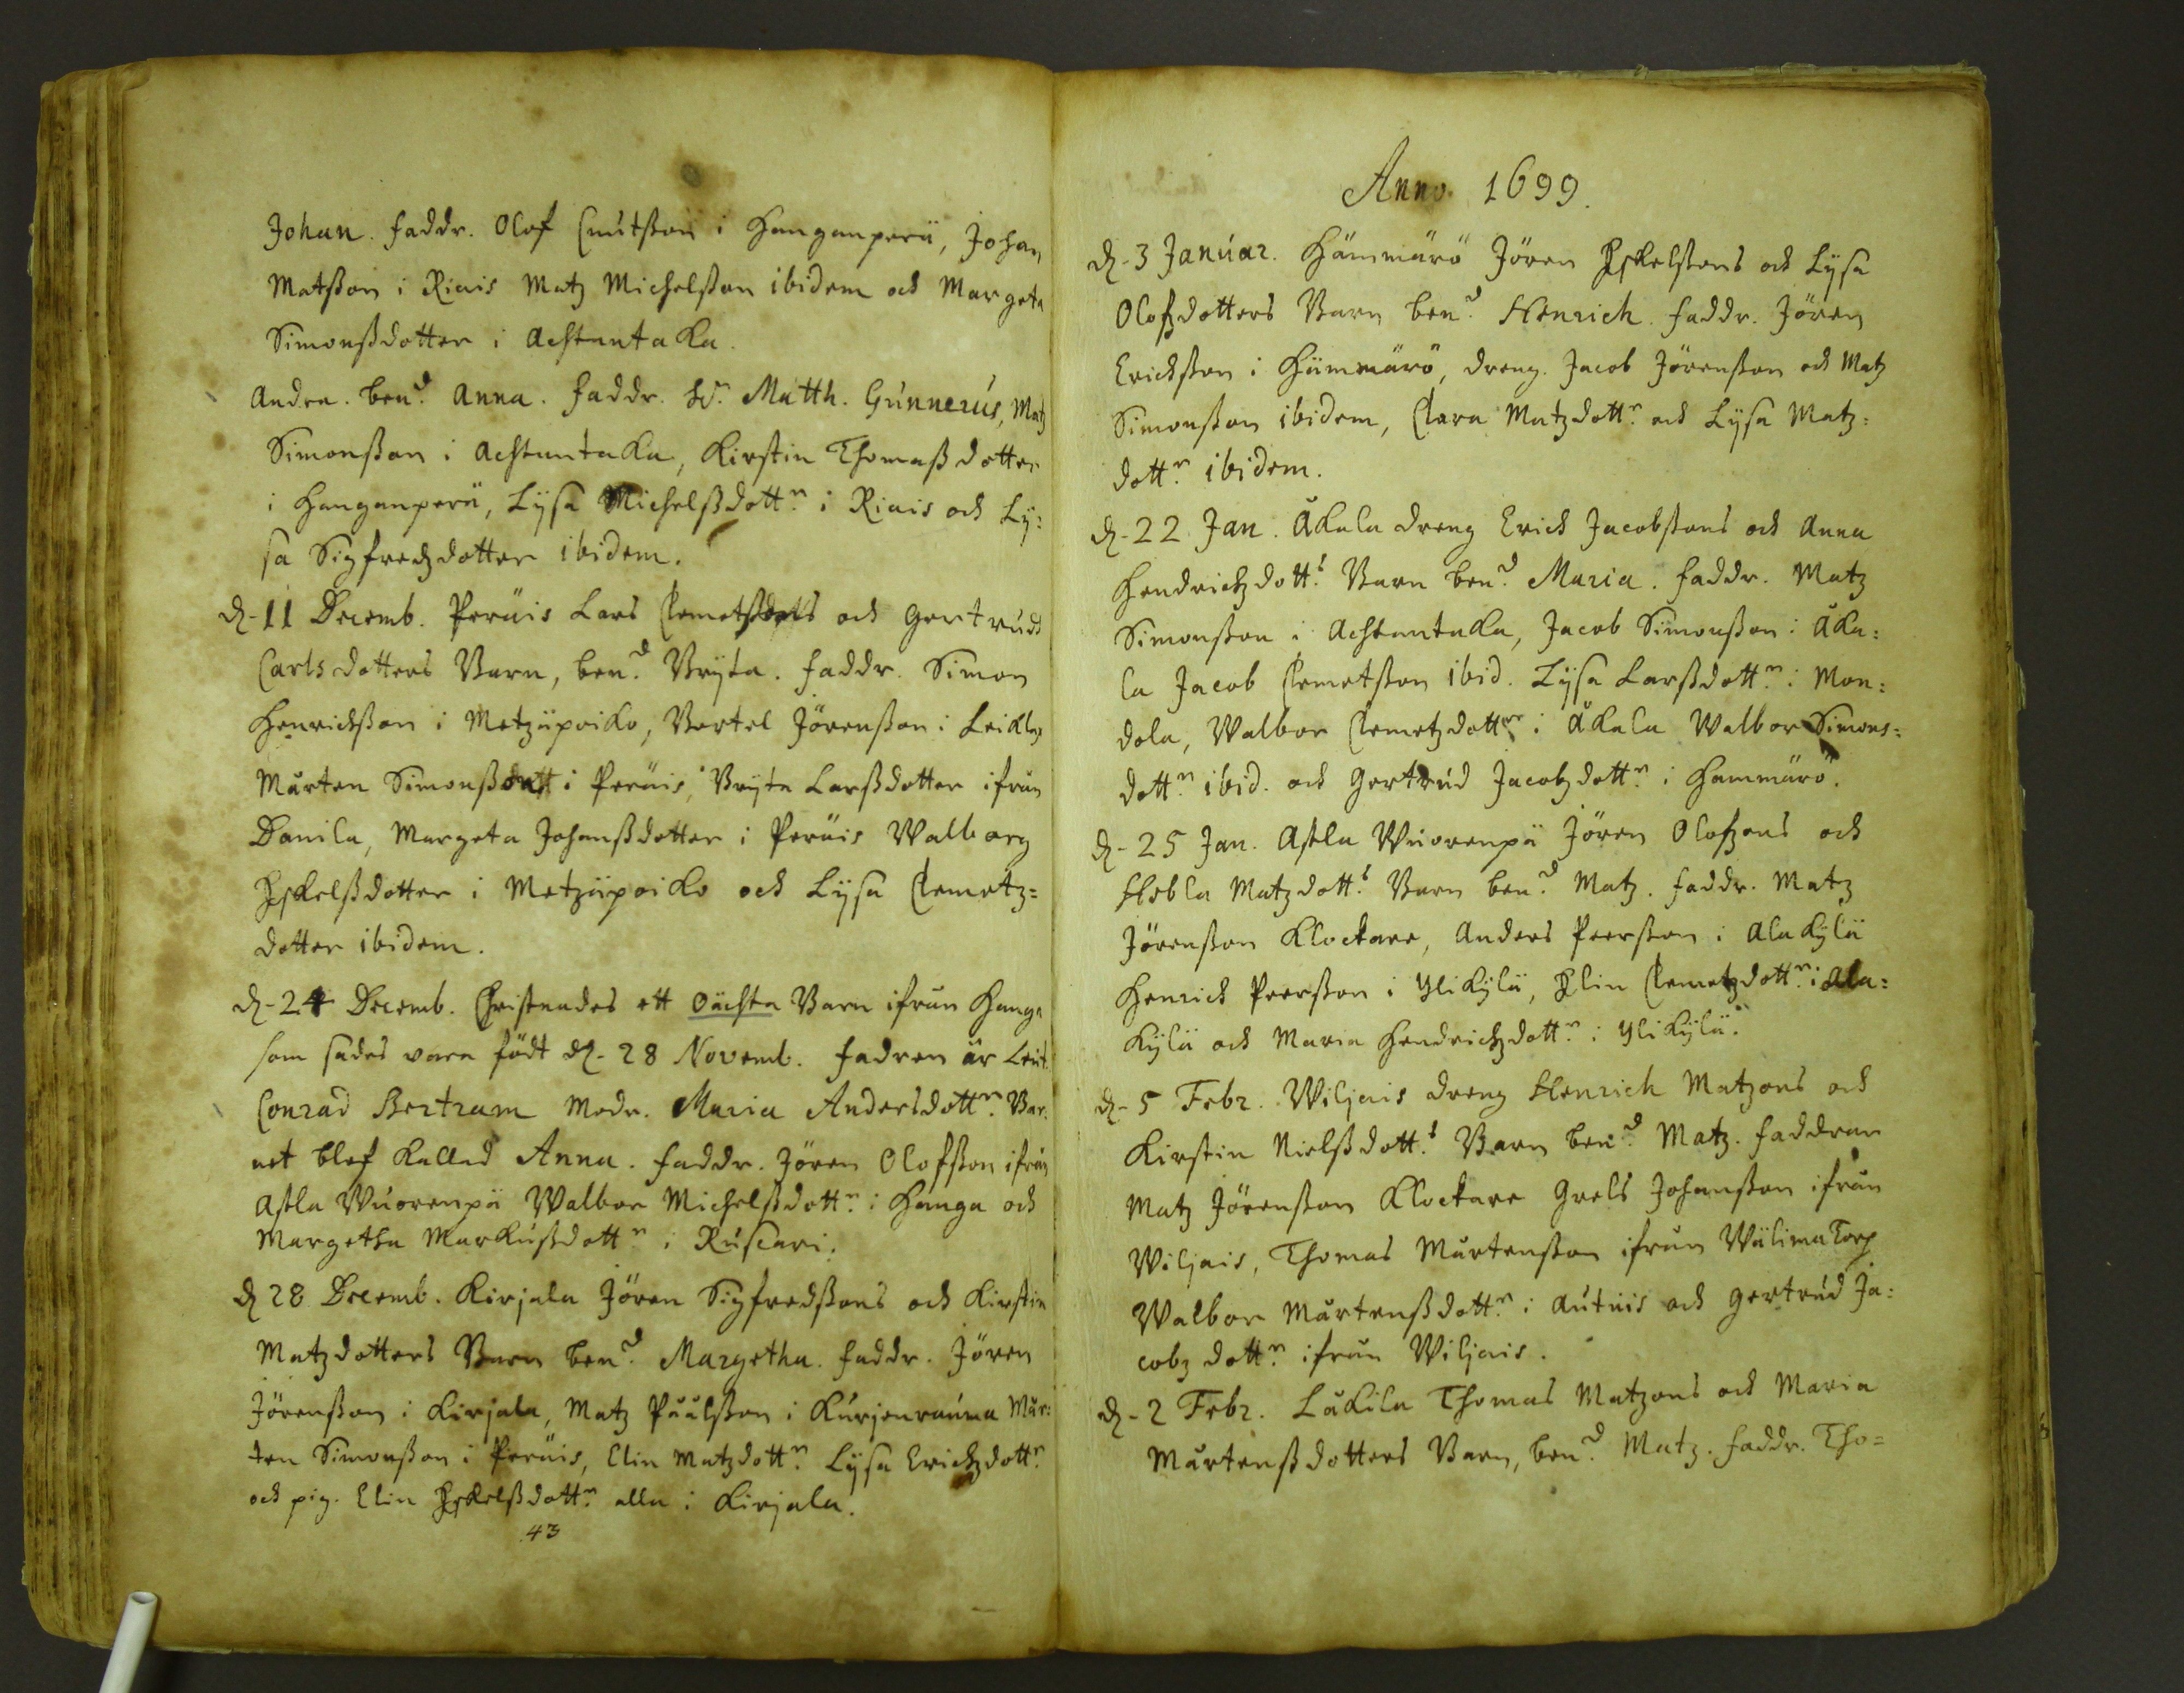 Johan. faddr. Olof Cnutßon i Hanganperä, Johan
Matßon i Riais Matz Michelßon ibidem och Margeta
Simonßdotter i Achtantaka.
Andra. ben.d Anna. faddr. Hr. Matth. Gunnerus, Matz
Simonßon i Achtantaka, Kirstin Thomaßdotter
i Hanganperä, Lysa Michelßdott.r i Riais och Ly:
sa Sigfredzdotter ibidem.
d. 11 Decemb. Peräis Lars Clemetßons och Gertrudh
Carlsdotters Barn, ben.d Bryta. faddr. Simon
Henrickßon i Metzäpoiko, Bertel Jörenßon i Leikla,
Mårten Simonßon i Peräis, Bryta Larßdotter ifrån
Danila, Margeta Johanßdotter i Peräis Walborg
Eskelßdotter i Metzäpoiko och Lysa Clemetz=
dotter ibidem.
d. 24 Decemb. Christnades ett oächta Barn ifrån Hanga
som sades vara födt d. 28 Novemb. fadren är Leut.
Conrad Bertram Modr. Maria Andersdott.r Bar:
net blef kallad Anna. faddr. Jören Olofßon ifrån
Astla Wuorenpä Walbor Michelßdott.r i Hanga och
Margetha Markußdott.r i Ruscari.
d. 28 Decemb. Kirjala Jören Sigfredßons och Kirstin
Matzdotters Barn ben.d Margetha. faddr. Jören
Jörenßon i Kirjala, Matz Påålßon i Kurjenrauma Mår:
ten Simonßon i Peräis, Elin Matzdott.r Lysa Erichzdott.r
och pig. Elin Eskelßdott.r alla i Kirjala.
43
Anno 1699.
d. 3 Januar. Hämmärö Jören Eskelßons och Lysa
Olofzdotters Barn ben.d Henrich. faddr. Jören
Erickßon i Hämmärö, dreng. Jacob Jörenßon och Matz
Simonßon ibidem, Clara Matzdott.r och Lysa Matz:
dott.r ibidem.
d. 22 Jan. Åkala dreng Erick Jacobßons och Anna
Hendrichzdott.s Barn ben.d Maria. faddr. Matz
Simonßon i Achtantaka, Jacob Simonßon i Åka:
la Jacob Clemetßon ibid. Lysa Larßdott.r i Mon:
dola, Walbor Clemetzdott.r i Åkala Walbor Simons:
dott.r ibid. och Gertrud Jacobzdott.r i Hammärö.
d. 25 Jan. Astla Wuorenpä Jören Olofzons och
Hebla Matzdott.s Barn ben.d Matz. faddr. Matz
Jörenßon Klockare, Anders Peerßon i Alakylä
Henrick Peerßon i Ylikylä, Elin Clemetzdott.r i Ala:
kylä och Maria Hendrichzdott.r i Ylikylä.
d. 5 Febr. Wiljais dreng Henrich Matzons och
Kirstin Nielßdott.s Barn ben.d Matz. faddran
Matz Jörenßon Klockare Grels Johanßon ifrån
Wiljais, Thomas Mårtenßon ifrån Wälimatorp
Walbor Mårtenßdott.r i Autuis och Gertrud Ja:
cobz dott.r ifrån Wiljais.
d. 2 Febr. Läkila Thomas Matzons och Maria
Mårtenßdotters Barn, ben.d Matz. faddr. Tho=